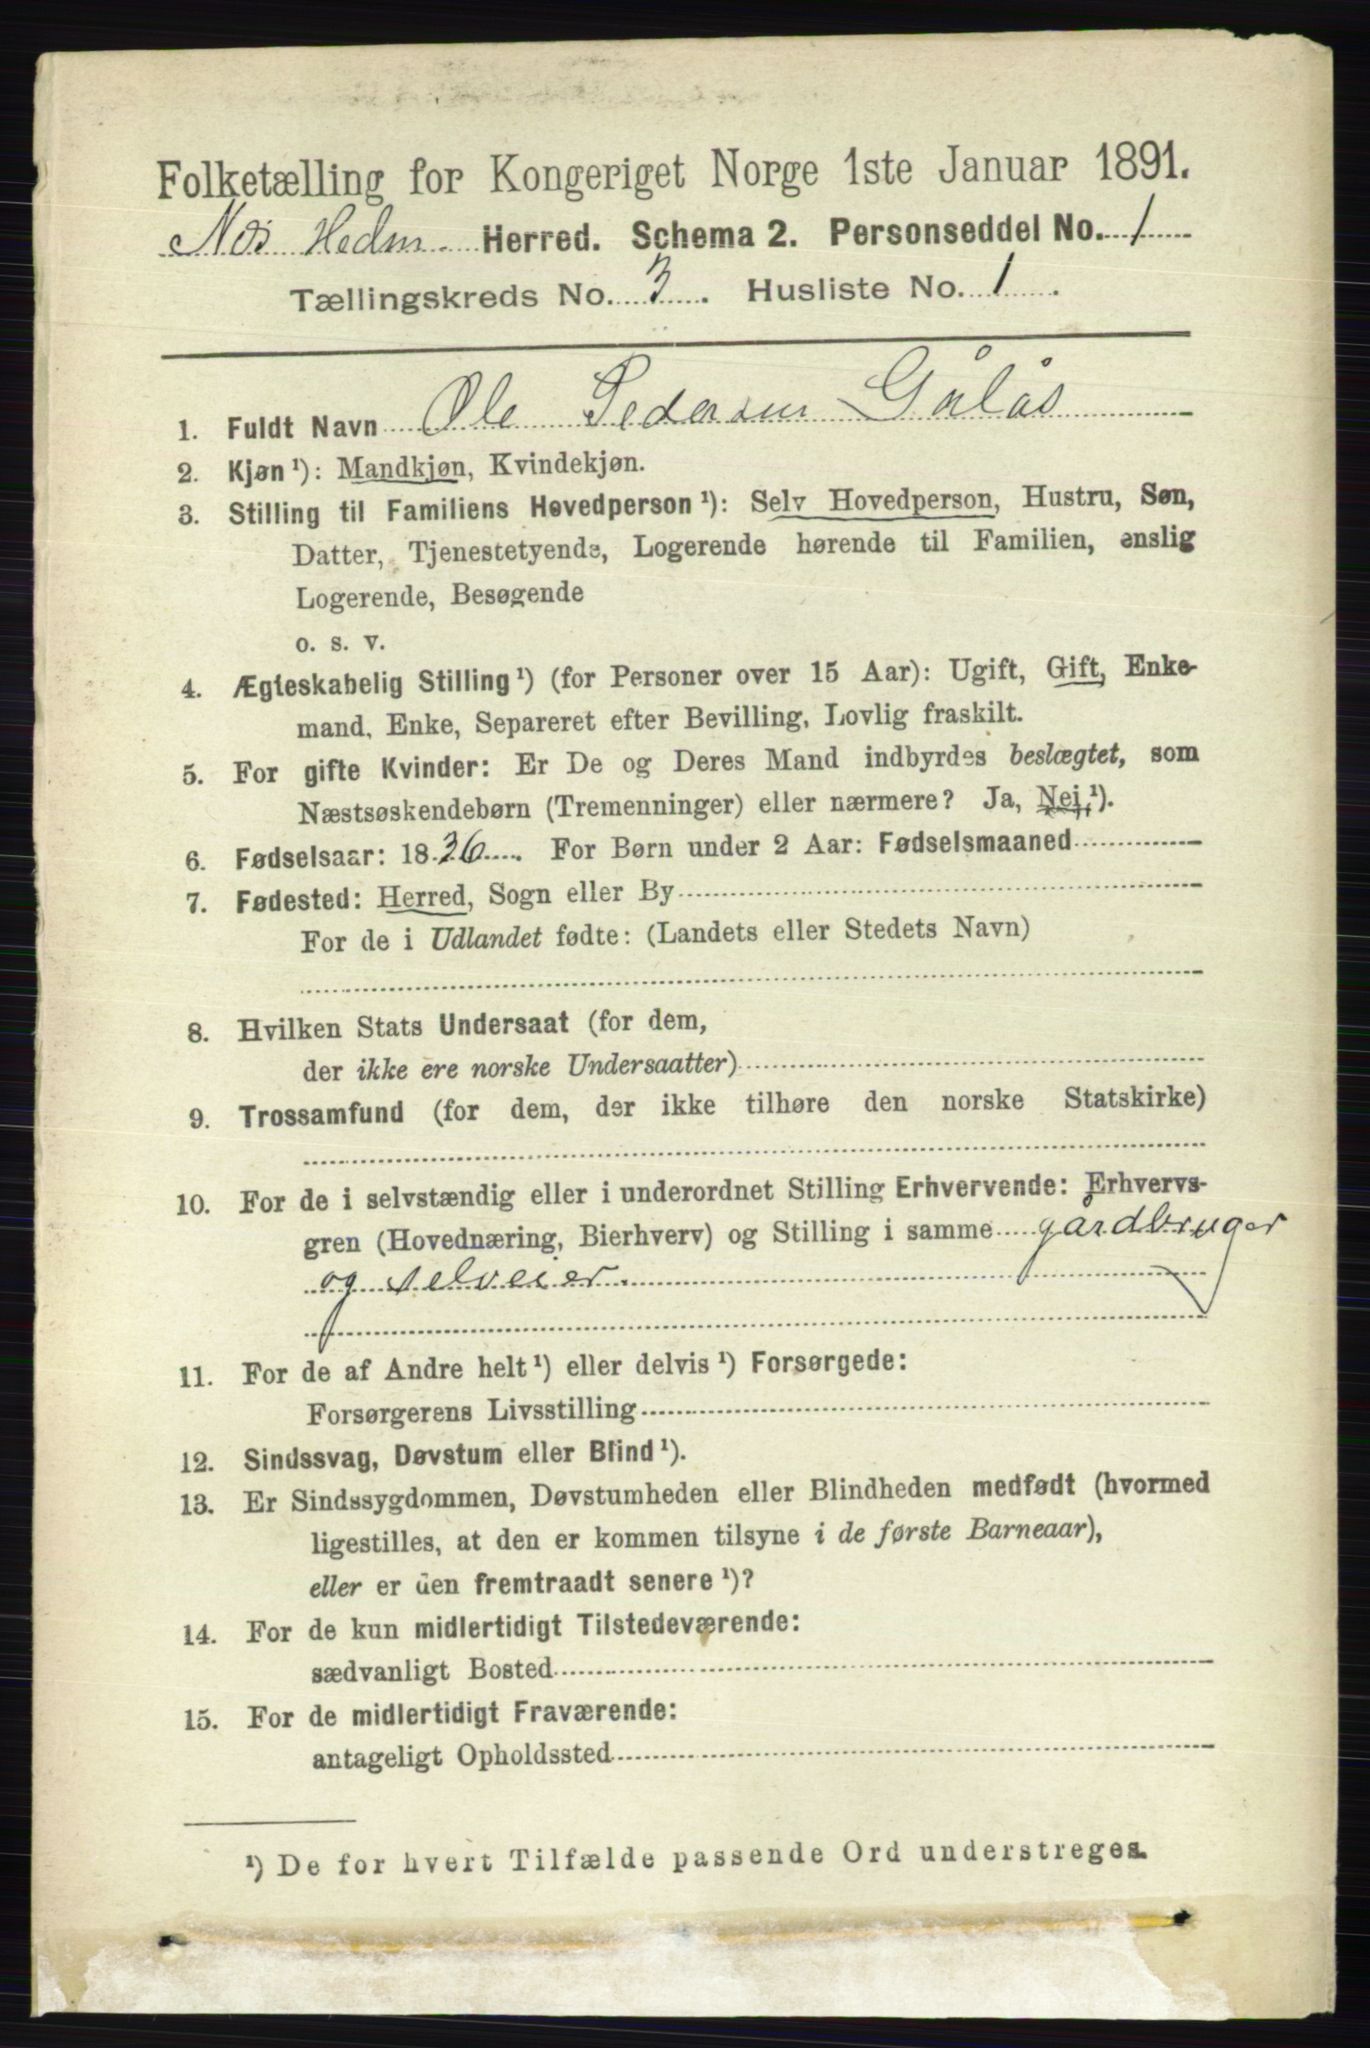 Folketælling for Kongeriget Norge 1ste Januar 1891.
Nes Hedm. Herred. Schema 2. Personseddel No. 1
Tællingskreds No. 3. Husliste No. 1.
1. Fuldt Navn Ole Pedersen Gålås
2. Kjøn¹): Mandkjøn, Kvindekjøn.
3. Stilling til Familiens Hovedperson¹): Selv Hovedperson, Hustru, Søn,
Datter, Tjenestetyende, Logerende hørende til Familien, enslig
Logerende, Besøgende
o. s. v.
4. Ægteskabelig Stilling¹) (for Personer over 15 Aar): Ugift, Gift, Enke-
mand, Enke, Separeret efter Bevilling, Lovlig fraskilt.
5. For gifte Kvinder: Er De og Deres Mand indbyrdes beslægtet, som
Næstsøskendebørn (Tremenninger) eller nærmere? Ja, Nej,¹).
6. Fødselsaar: 1836. For Børn under 2 Aar: Fødselsmaaned
7. Fødested: Herred, Sogn eller By
For de i Udlandet fødte: (Landets eller Stedets Navn)
8. Hvilken Stats Undersaat (for dem,
der ikke ere norske Undersaatter)
9. Trossamfund (for dem, der ikke tilhøre den norske Statskirke)
10. For de i selvstændig eller i underordnet Stilling Erhvervende: Erhvervs-
gren (Hovednæring, Bierhverv) og Stilling i samme gårdbruger
og selveier.
11. For de af Andre helt¹) eller delvis¹) Forsørgede:
Forsørgerens Livsstilling
12. Sindssvag, Døvstum eller Blind¹).
13. Er Sindssygdommen, Døvstumheden eller Blindheden medfødt (hvormed
ligestilles, at den er kommen tilsyne i de første Barneaar),
eller er den fremtraadt senere¹)?
14. For de kun midlertidigt Tilstedeværende:
sædvanligt Bosted
15. For de midlertidigt Fraværende:
antageligt Opholdssted
¹) De for hvert Tilfælde passende Ord understreges.